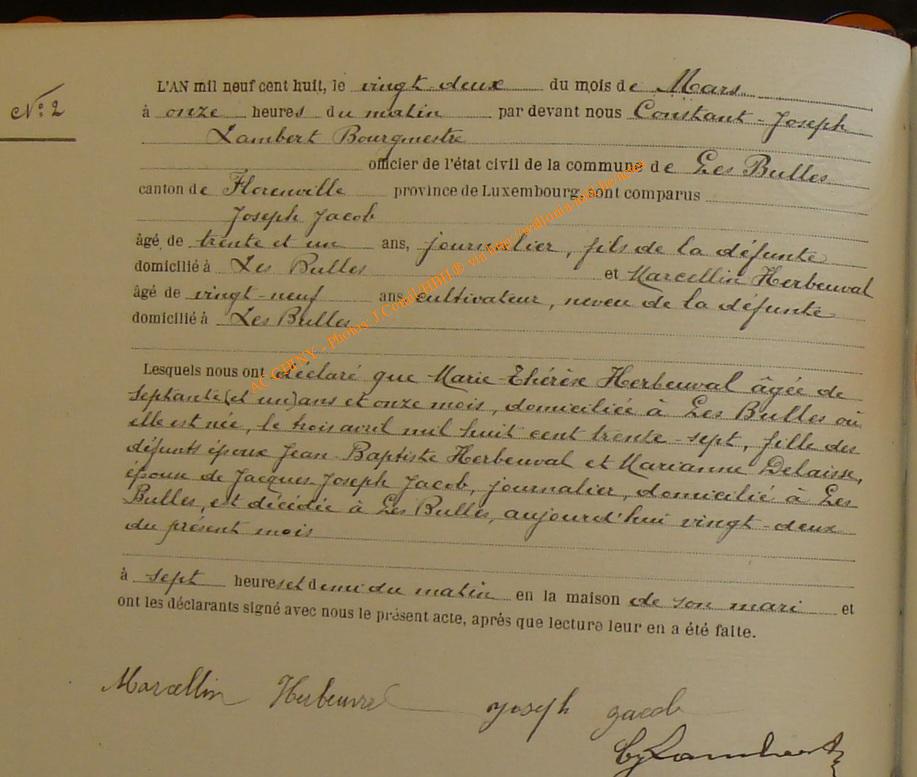 N° 2
L'AN mil neuf cent huit, le vingt-deux du mois de Mars
à onze heures du matin par devant nous Constant-Joseph
Lambert Bourgmestre
officier de l'état civil de la commune de Les Bulles
canton de Florenville province de Luxembourg, sont comparus
Joseph Jacob
âgé de trente et un ans, journalier, fils de la défunte
domicilié à Les Bulles et Marcellin Herbeuval
âgé de vingt-neuf ans cultivateur, neveu de la défunte
domicilié à Les Bulles
Lesquels nous ont déclaré que Marie-Thérèse Herbeuval âgée de
septante (et un) ans et onze mois, domiciliée à Les Bulles où
elle est née, le trois avril mil huit cent trente-sept, fille des
défunts époux Jean-Baptiste Herbeuval et Marianne Delaisse,
épouse de Jacques Joseph Jacob, journalier, domicilié à Les
Bulles, est décédée à Les Bulles, aujourd'hui vingt-deux
du présent mois
à sept heures et demi du matin en la maison de son mari et
ont les déclarants signé avec nous le présent acte, après que lecture leur en a été faite.
Marcellin Herbeuval Joseph Jacob
CJLambert
AC CHINY - Photos J.Collit-HDH ® via